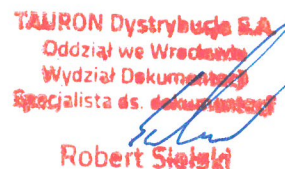 TAURON Dystrybucja S.A.
Oddział we Wrocławiu
Wydział Dokumentacji
Specjalista ds. dokumentacji
Robert